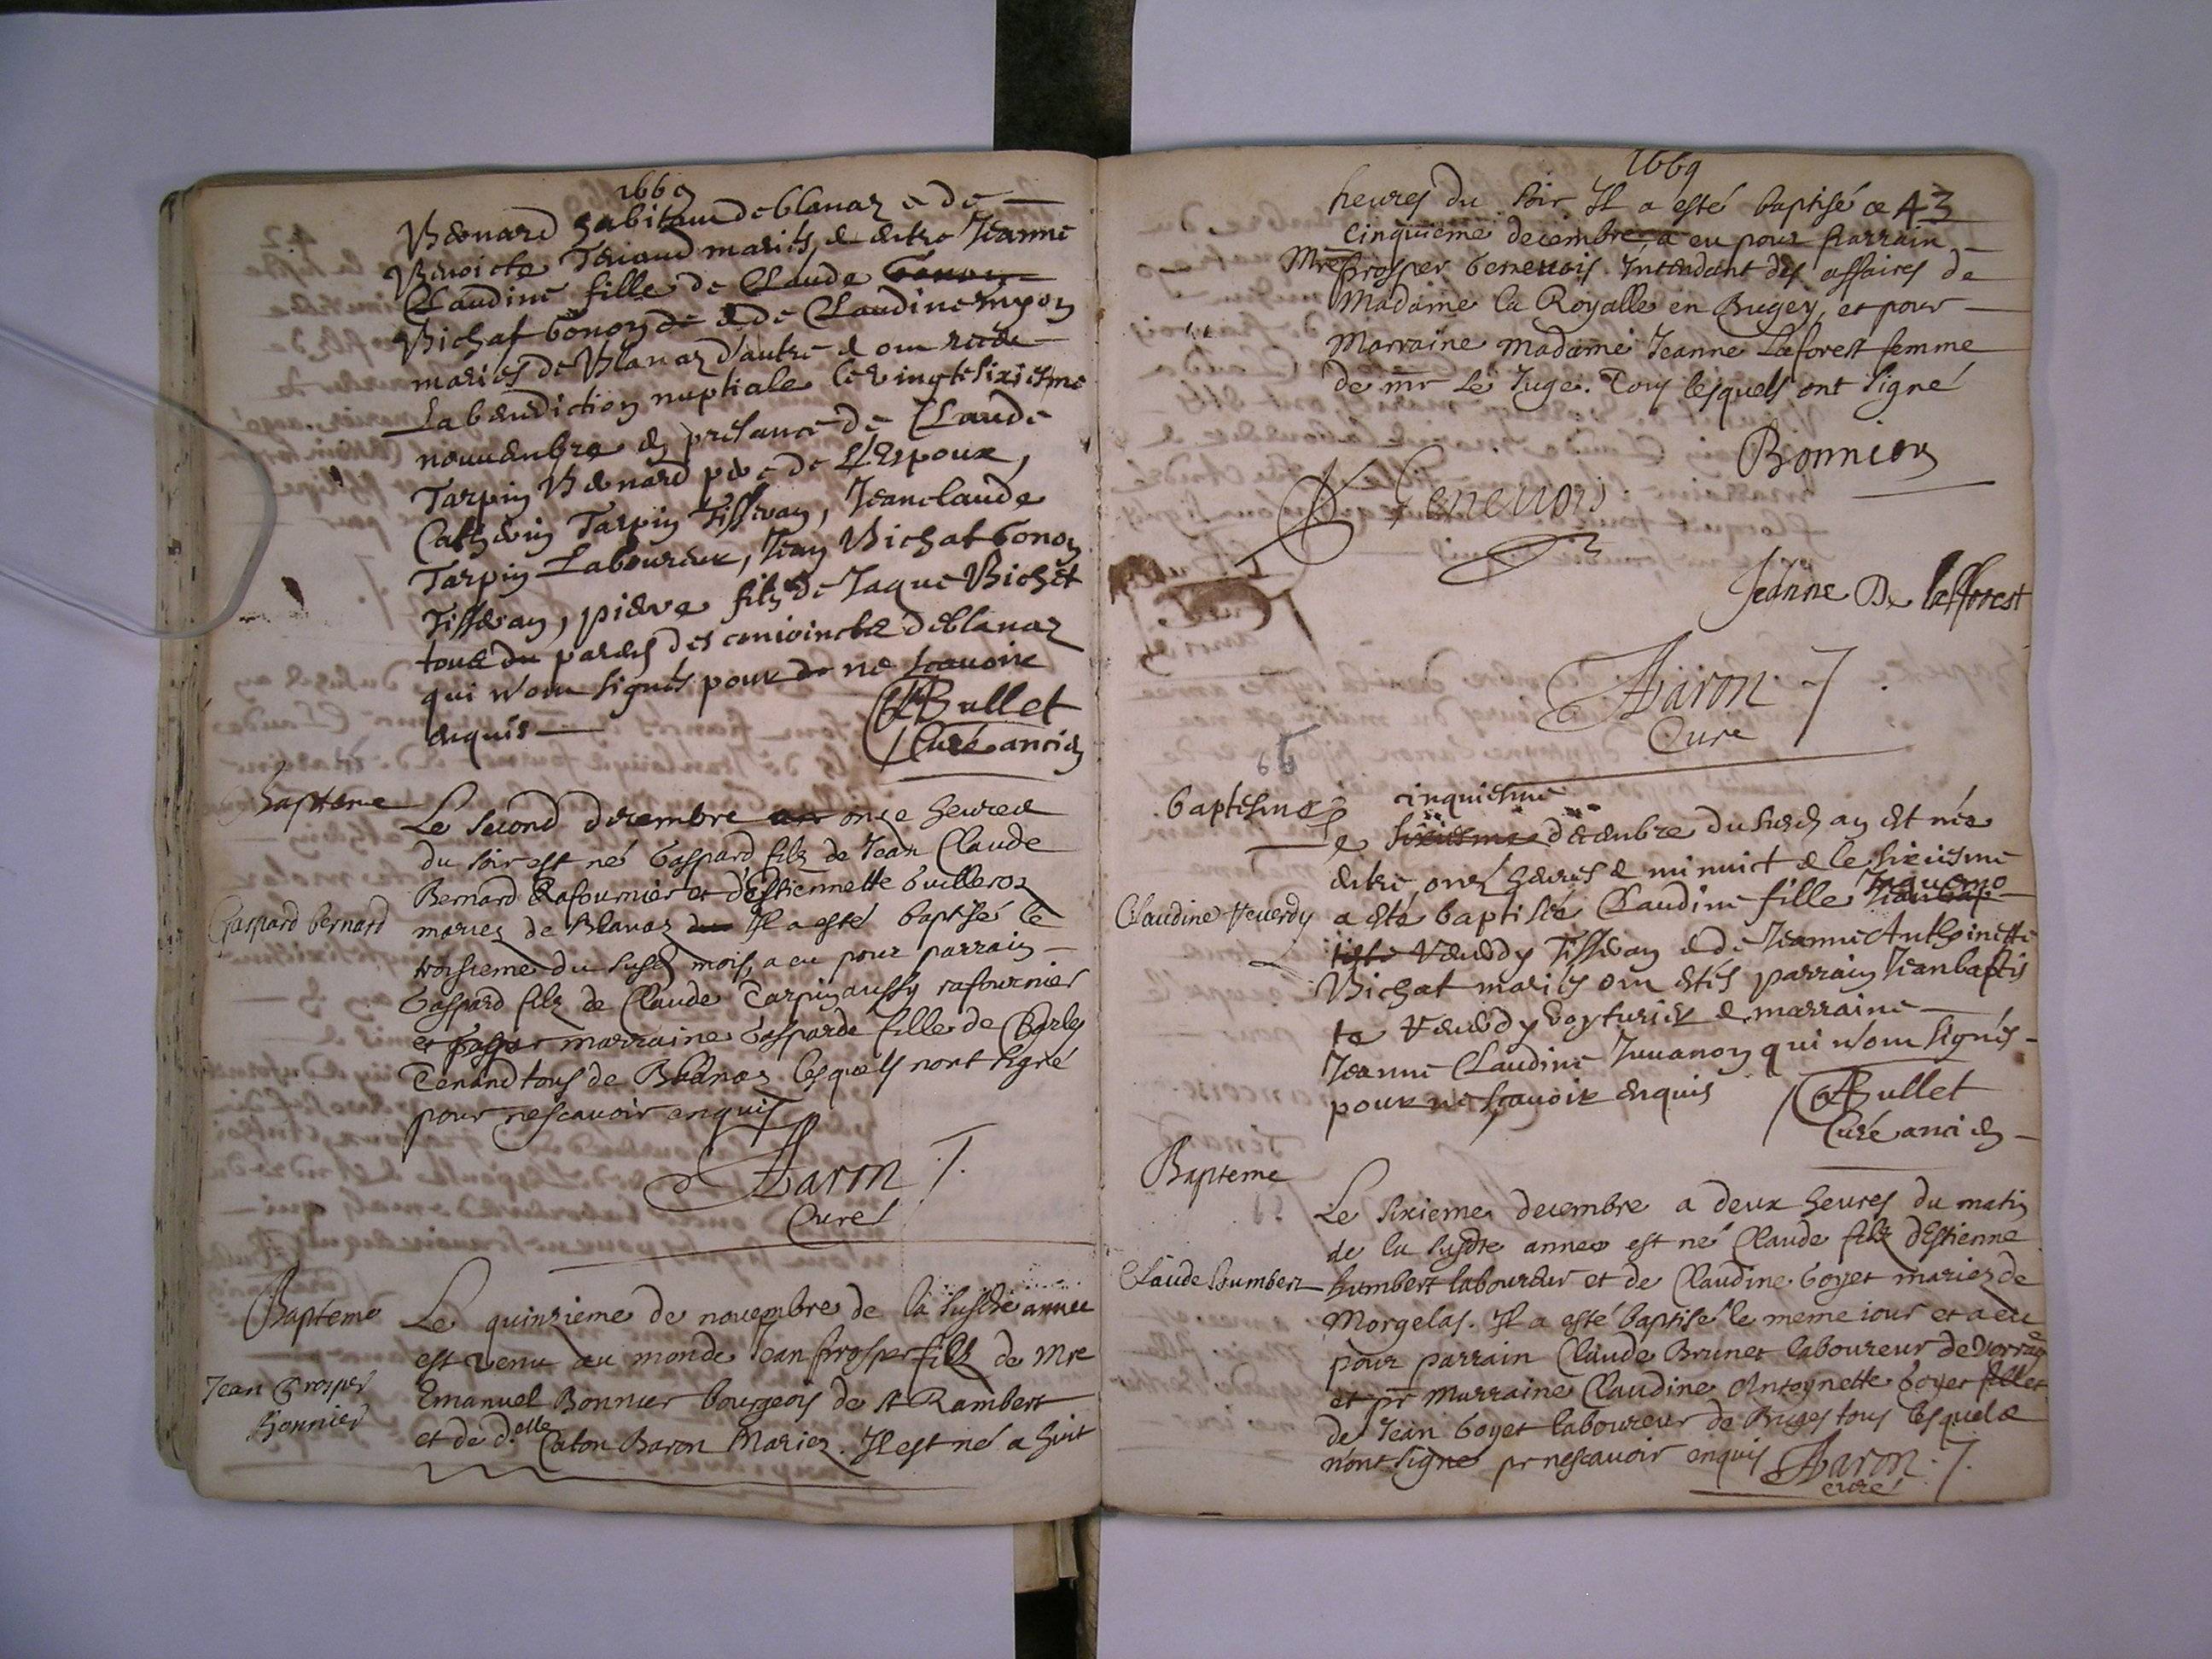 1669
Bernard habitant de blanaz & de
Benoicte Tenand mariés, & entre Jeanne
Claudine fille de Claude
Bichat Gonon & de Claudine
mariés de Blanaz d'autre & ont receu
La benediction nuptiale le vingtesixiesme
nouuembre en presance de Claude
Tarpin Bernard pere de L'Espoux,
Cathelin Tarpin Tisseran, Jeanclaude
Tarpin Laboureur, Jean Bichat Gonon
Tisseran, pierre filz de Jaque Bichat
tous parens des conioincts de blanaz
qui n'ont signés pour ne scauoir
enquis
Bullet
Curé ancien
Bapteme
Le second decembre onze heures
du soir est né Gaspard filz de Jean Claude
Bernard Rafournier et d'Estiennette Guilleroz
Gaspard bernard
mariez de Blanaz Il a esté baptisé le
troisieme du susd mois, a eu pour parrain
Gaspard filz de Claude Tarpin aussy rafournier
et marraine Gasparde fille de Charles
Tenand tous de Blanaz lesquels nont signé
pour nescauoir enquis
Aaron
Curé
Bapteme
Le quinzieme de nouembre de la susdte annee
est venu au monde Jean prosper filz de Mre
Jean Prosper
Bonnier
Emanuel Bonnier bourgeois de st Rambert
et de d.elle Caton Baron Mariez. Il est né a huit
1669
heures du soir Il a esté baptisé ce 43
cinquieme decembre, a eu pour parrain
Mre prosper Geneuois Intendant des affaires de
Madame la Royalle en Bugey, et pour
Marraine Madame Jeanne Laforest femme
de mr le Juge. Tous lesquels ont signé
Bonnier
Geneuois
Jeanne De lafforest
Aaron
Cure
baptesme
cinquiesme
Le sixiesme decembre du susd an est née
entre onze heures & minuict & le sixiesme
Claudine Reuerdy
a esté baptisée Claudine fille
Reuerdy Tisseran & de Jeanne Anthoinette
Bichat mariés ont estés parrain Jeanbaptis
te Reuerdy voyturier & marraine
Jeanne Claudine Juuanon qui n'ont signés
pour ne scauoir enquis
Bullet
Curé ancien
Bapteme
Le sixieme decembre a deux heures du matin
de la susdte annee est né Claude filz d'Estienne
Claude humbert
humbert laboureur et de Claudine Goyet mariez de
Morgelas. Il a esté baptisé le meme iour et a eu
pour parrain Claude Brunet laboureur de
et pr marraine Claudine Antoynette Goyet fille
de Jean Goyet laboureur de Buges tous lesquels
n'ont signé pr nescauoir enquis
Aaron
curé